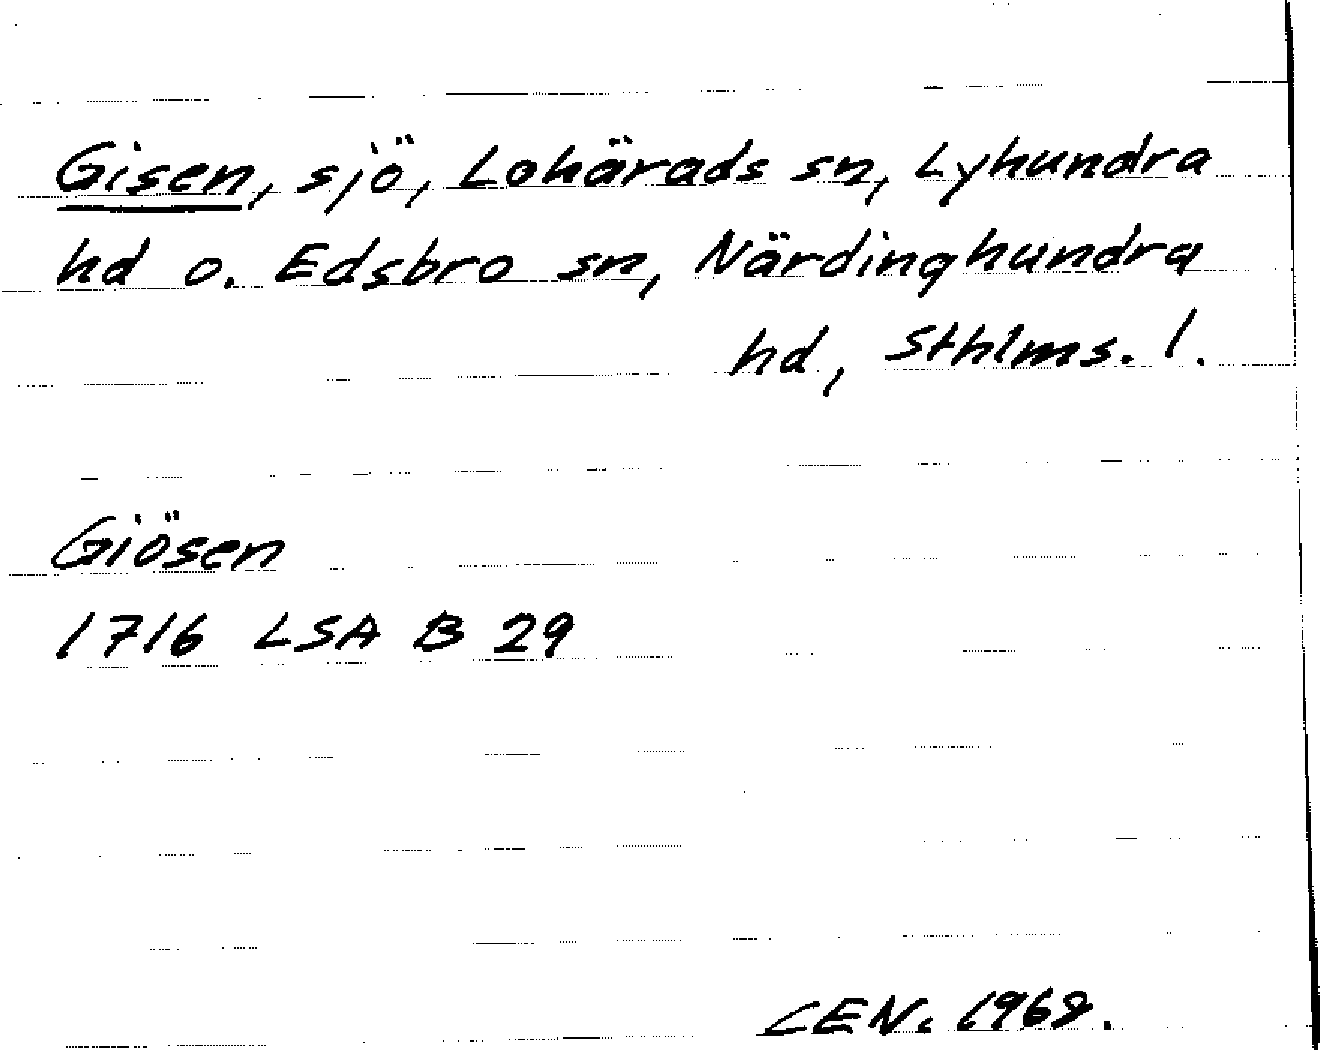 Gisen, sjö, Lohärads sn, Lyhundra
hd o. Edsbro sn, Närdinghundra
hd, Sthlms. l.
Giösen
1716 LSA B 29
CEN. 1968.